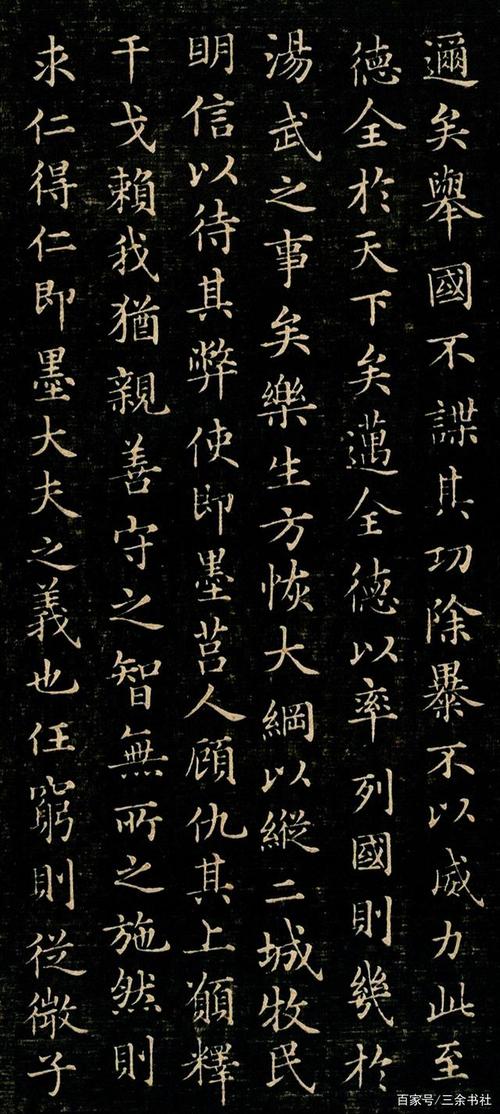 邇矣舉國不謀其功除暴不以威力此至
德全於天下矣邁全德以率列國則幾於
湯武之事矣樂生方恢大綱以縱二城牧民
明信以待其弊使即墨莒人顧仇其上願釋
干戈賴我猶親善守之智無所之施然則
求仁得仁即墨大夫之義也任窮則從微子
百家号/三余书社